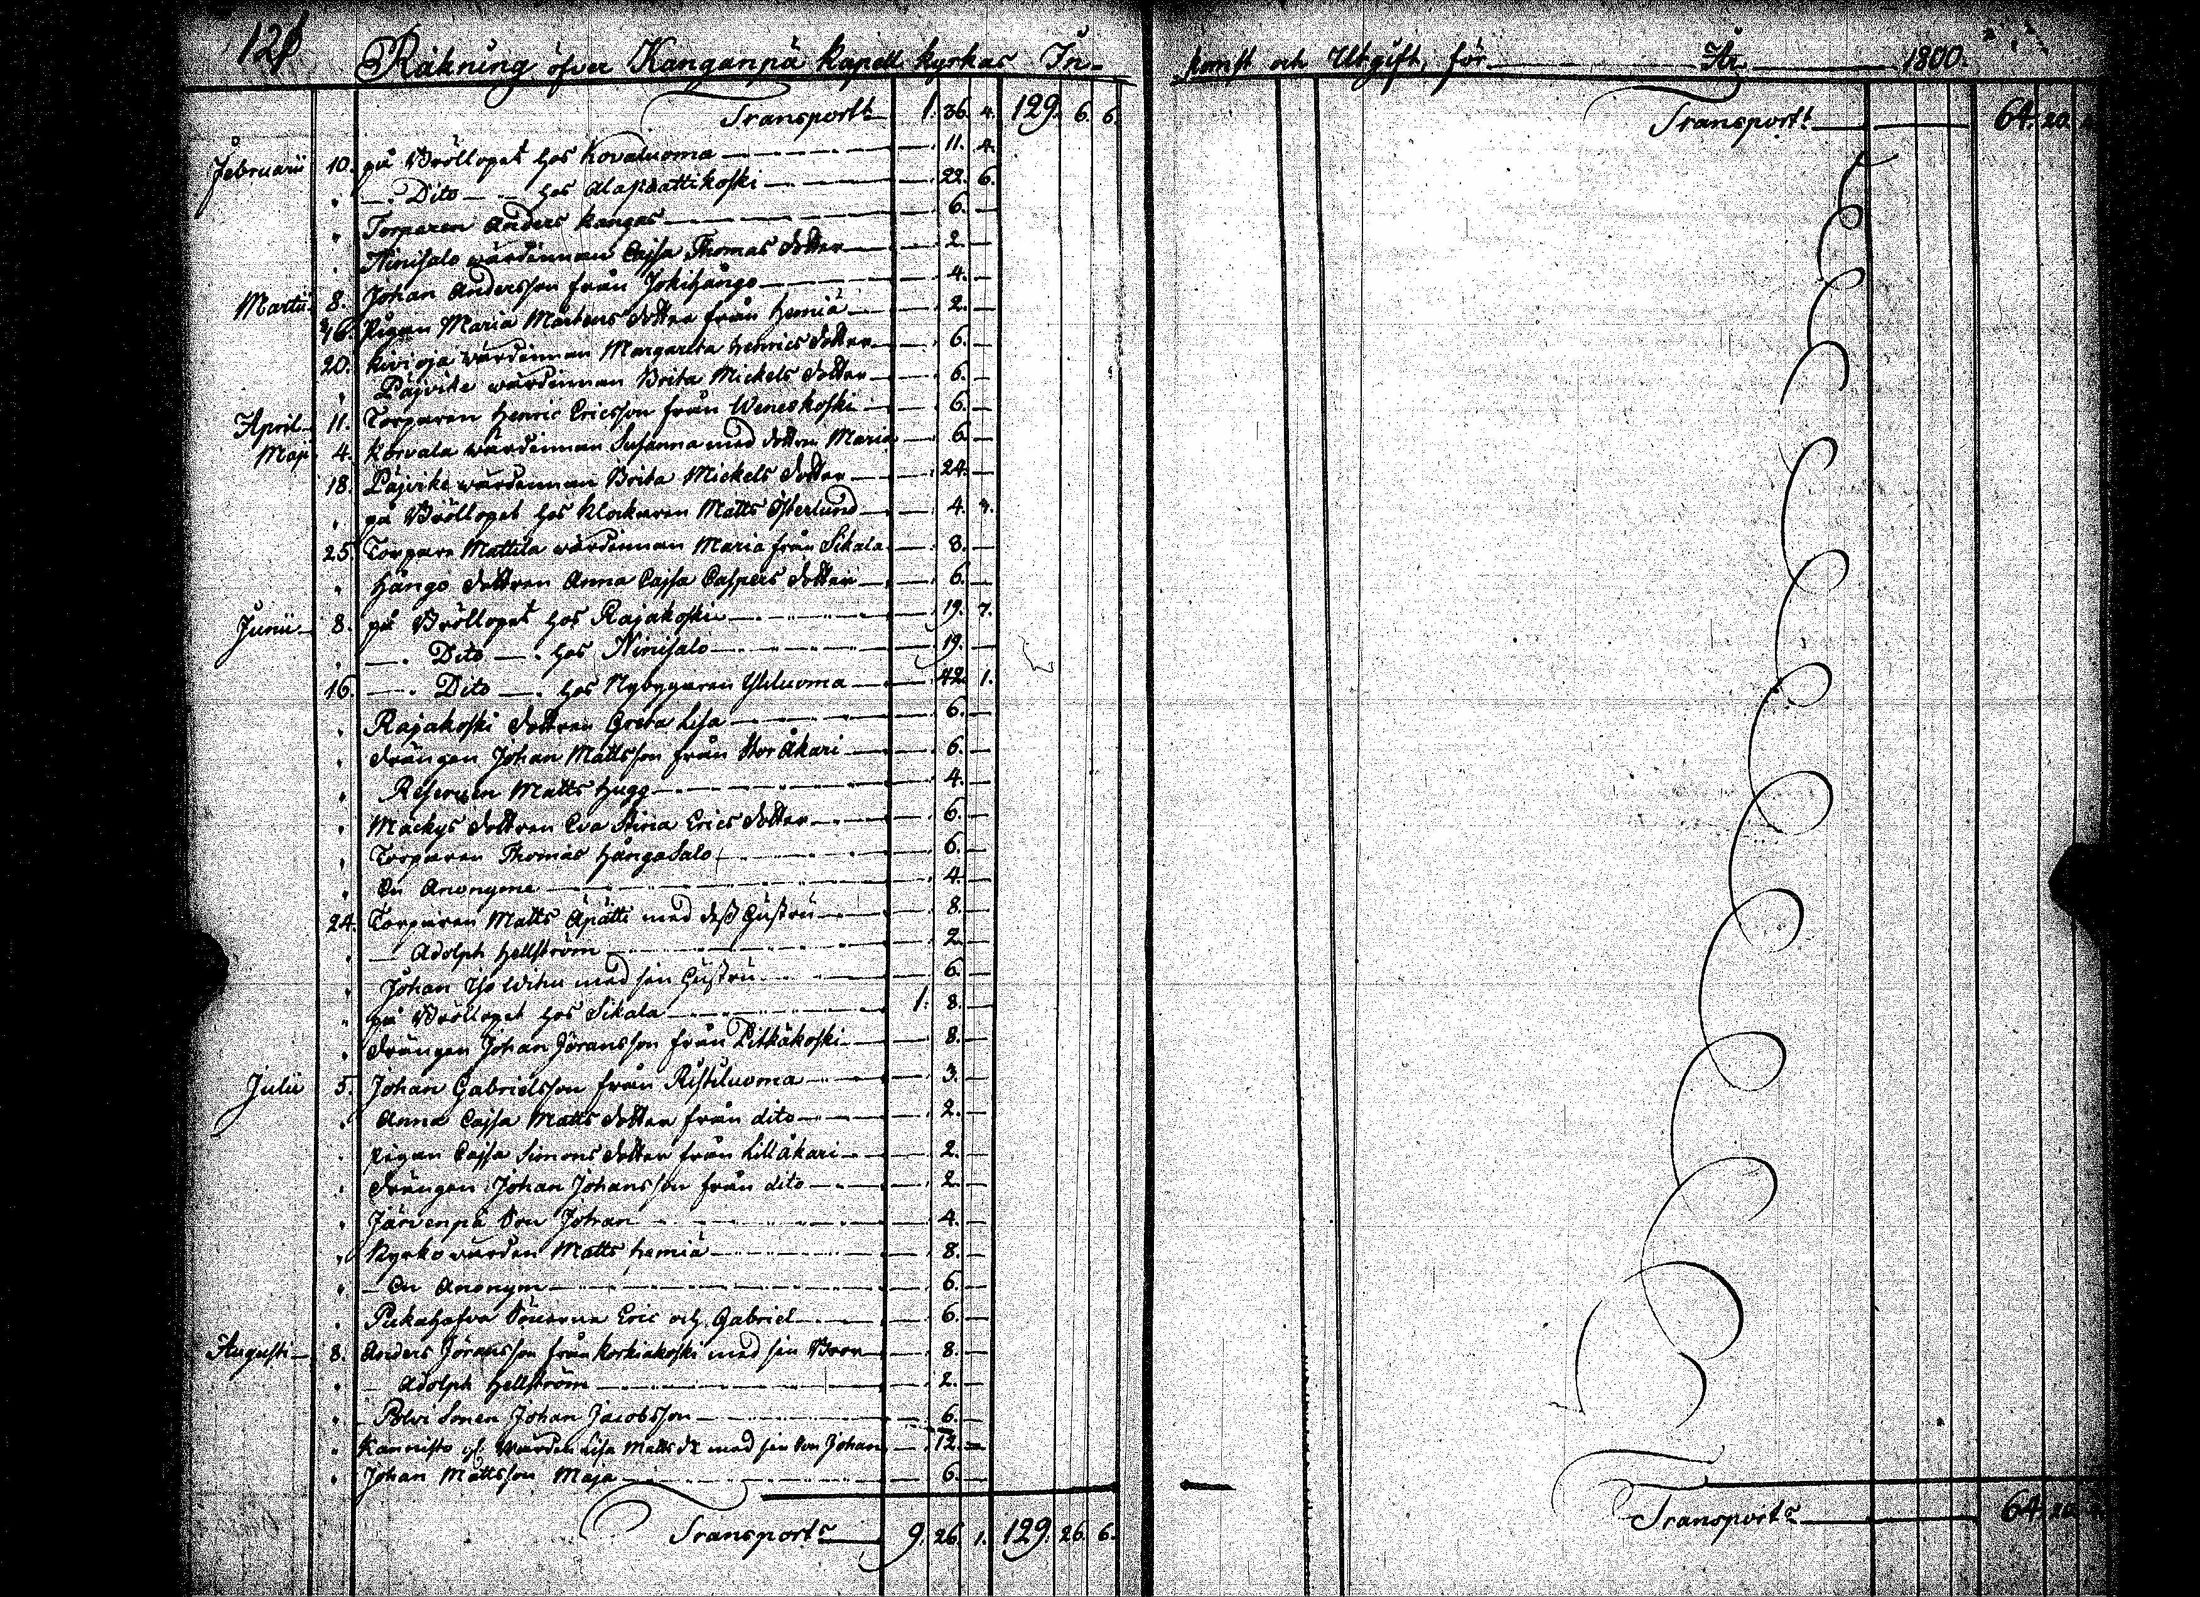 124
Räkning öfver Kanganpä Kapell kyrkas In-
Transport 1. 36. 4. 129. 6. 6.
Februarii 10. på Bröllopet hos Kovaluoma — 11. 4.
" — Dito — hos Alapaattikoski — 22. 6.
" Torparen Anders Kangas — 6. —
" Niinisalo wärdinnan Cajsa Thomas dotter — 2. —
Martii 8. Johan Andersson från Jokihango — 4. —
16. Pigan Maria Mårtens dotter från Hemiä — 2. —
20. Kivioja wärdinnan Margareta Henrics dotter — 6. —
" Päjvike wärdinnan Brita Mickels dotter — 6. —
April 11. Torparen Henric Ericsson från Weneskoski — 6. —
Maji 4. Korvala wärdinnan Susanna med dottren Maria — 6. —
18. Päjvike wärdinnan Brita Mickels dotter — 24. —
" på Bröllopet hos Klockaren Matts Österlund — 4. 8.
25. Torpare Mattila wärdinnan Maria från Sikala — 8. —
" Hångo dottren Anna Cajsa Caspers dotter — 6. —
Junii 8. på Bröllopet hos Rajakoski — 19. 7.
" — Dito — hos Niinisalo — 19. —
16. — Dito — hos Nybyggaren Yliluoma — 42. 1.
" Rajakoski dottren Greta Lisa — 6. —
" drängen Johan Mattsson från Stor Åkari — 6. —
" Reserven Matts Hugg — 4. —
" Mäckys dottren Eva Stina Erics dotter — 6. —
" Torparen Thomas HångaSalo — 6. —
" En Anonyme — 4. —
24. Torparen Matts Äpätti med dess Hustru — 8. —
" — Adolph Hellström — 2. —
" Johan med sin Hustru — 6. —
" på Bröllopet hos Sikala — 1. 8. —
" drängen Johan Jöransson från Pitkäkoski — 8. —
Julii 5. Johan Gabrielsson från Ristiluoma — 3. —
" Anna Cajsa Matts dotter från dito — 2. —
" Pigan Cajsa Simons dotter från Lill åkari — 2. —
" drängen Johan Johansson från dito — 2. —
" Järvenpä Son Johan — 4. —
" Kyrko wärden Matts Hemiä — 8. —
" — En Anonym — 6. —
" Pukahafva Sönerna Eric och Gabriel — 6. —
Augusti 8. Anders Jöransson från Korkiakoski med sin Bror — 8. —
" — Adolph Hellström — 2. —
" Polvi Sonen Johan Jacobsson — 6. —
" Kannisto wärden Lisa Matts dr med sin Son Johan — 12. —
" Johan Mattsson Maja — 6. —
Transport 9. 26. 1. 129. 26. 6.
komst och Utgift, för — År — 1800.
Transport — 64. 20.
Transport — 64. 20.